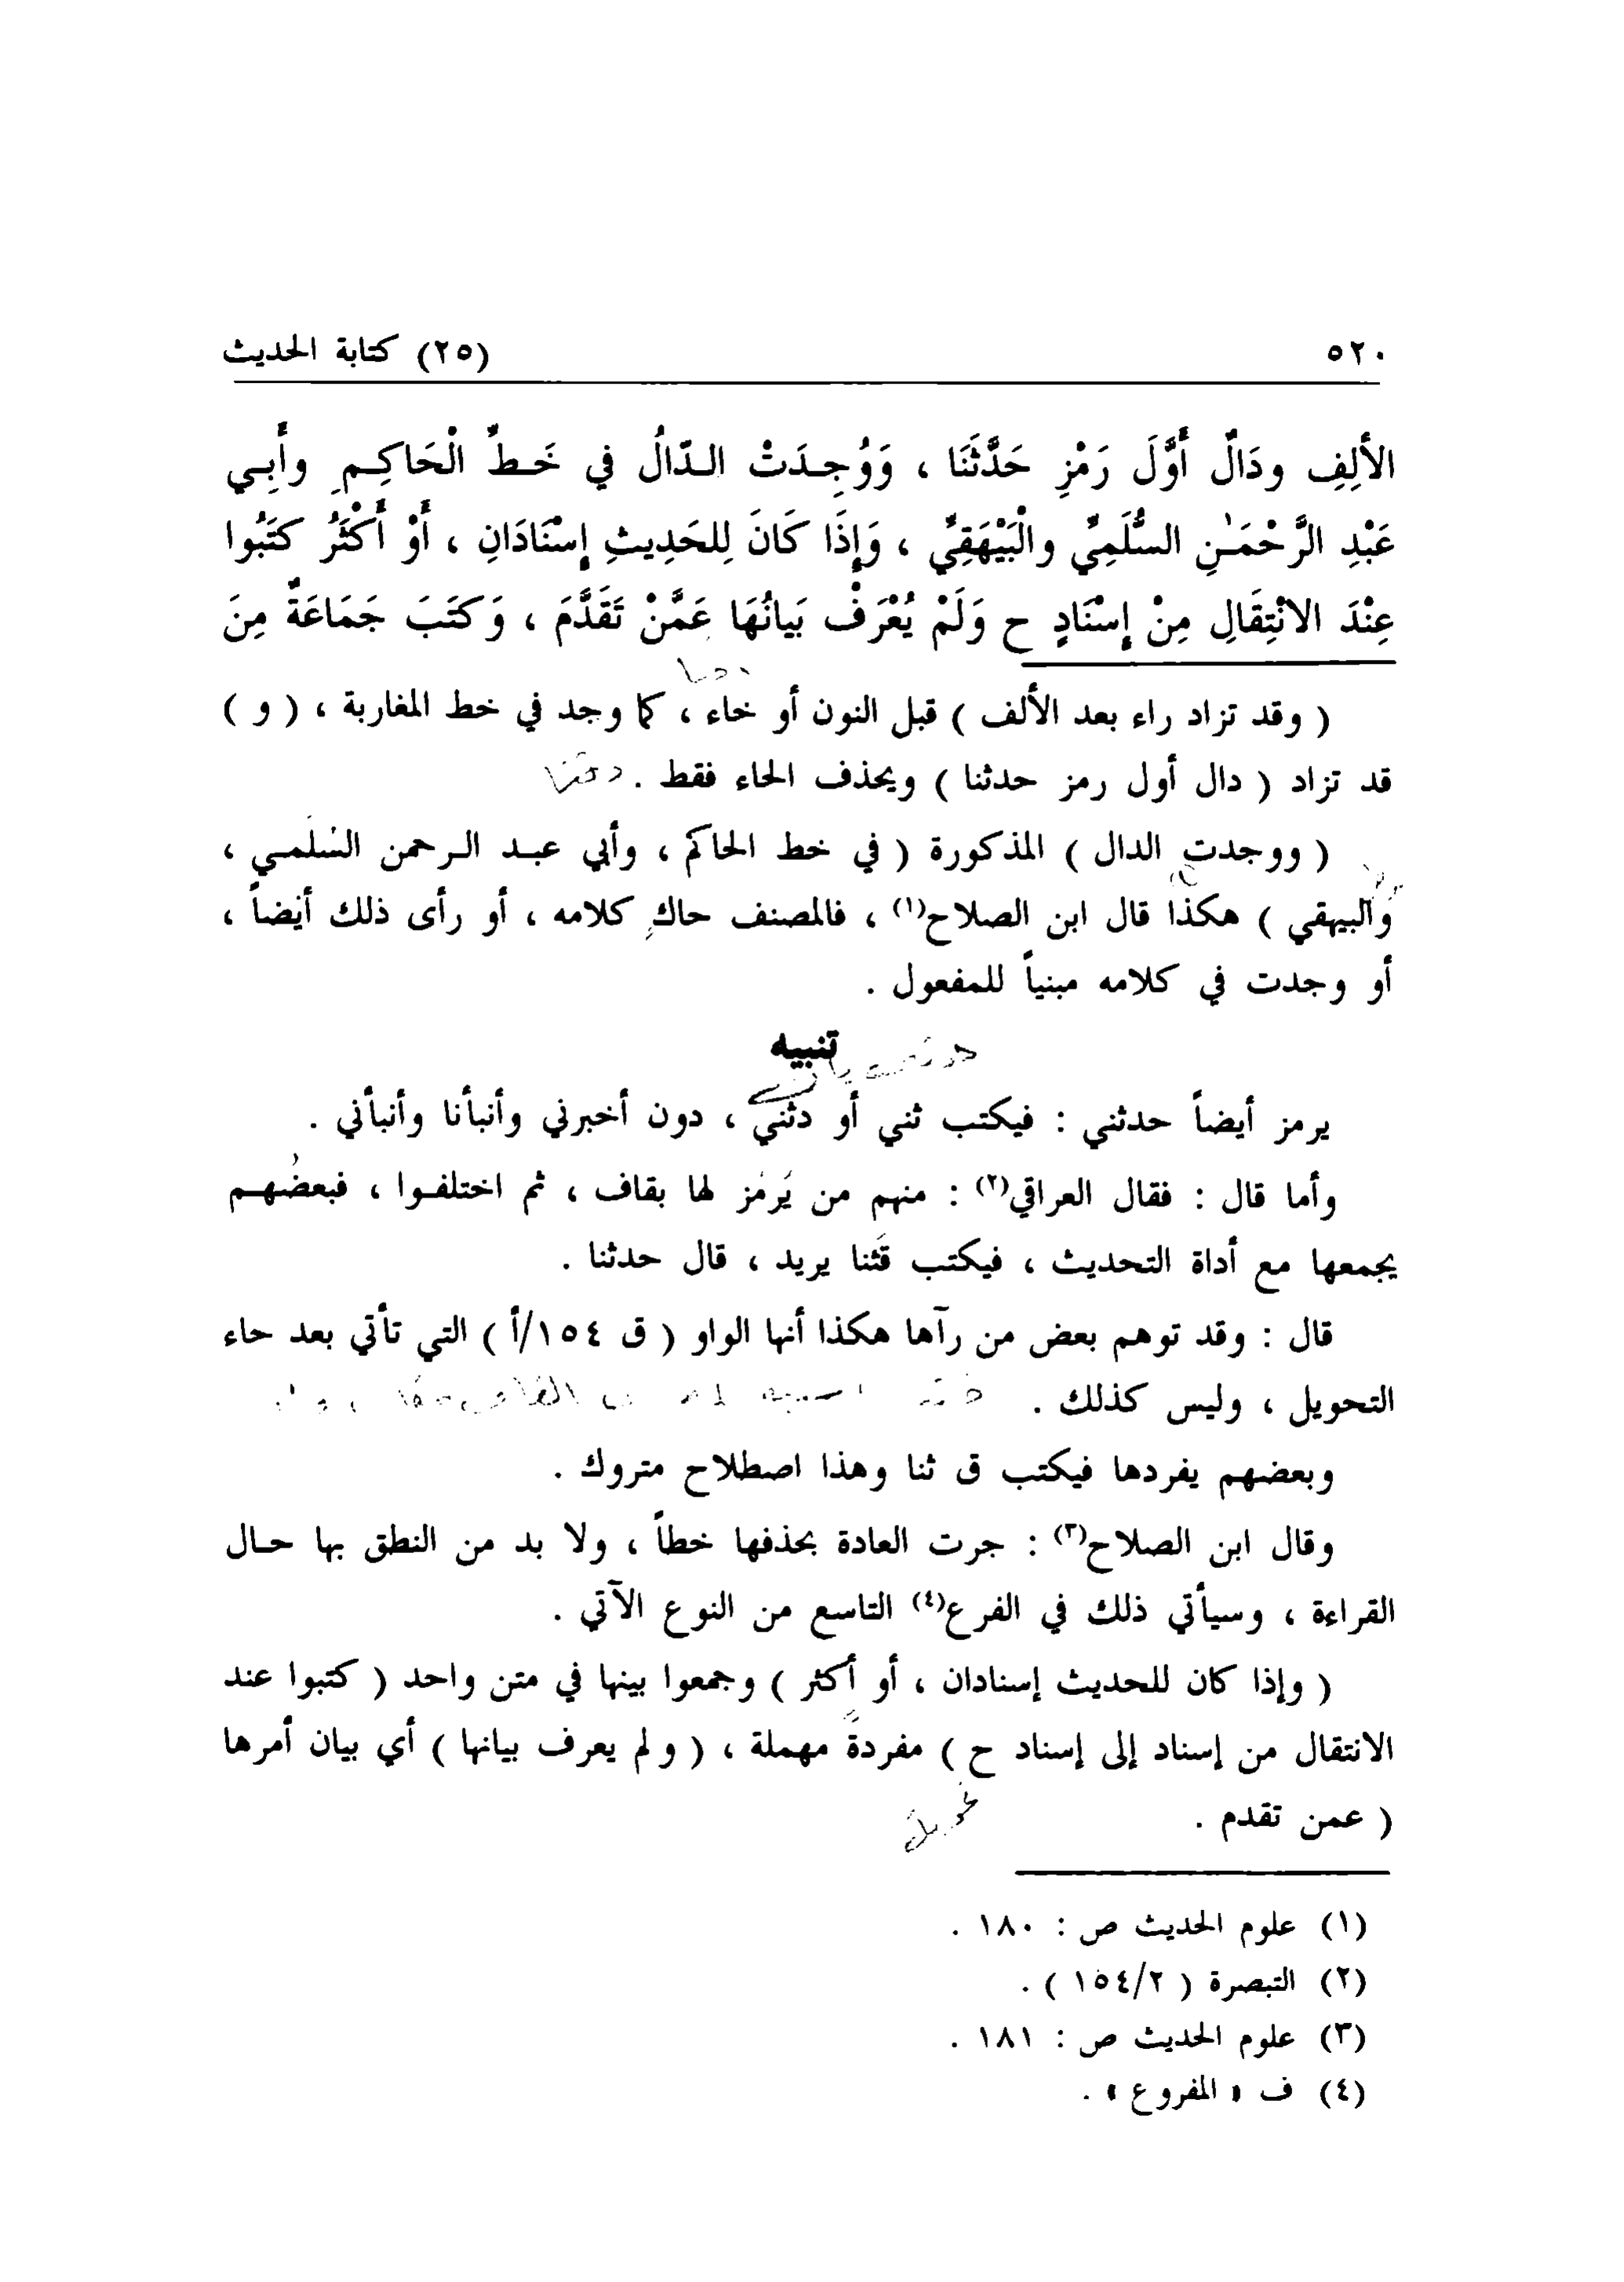 ٥٢٠ (٢٥) كتابة الحديث
الألِفِ ودَالٌ أَوَّلَ رَمْزِ حَدَّثَنَا ، وَوُجِـدَتْ الـدّالُ في خَـطِّ الْحَاكِـمِ وأَبِـي
عَبْدِ الرَّحْمَـٰنِ السُّلَمِيِّ والْبَيْهَقِيِّ ، وَإِذَا كَانَ لِلحَدِيثِ إِسْنَادَانِ ، أَوْ أَكْثَرُ كَتَبُوا
عِنْدَ الانْتِقَالِ مِنْ إِسْنَادٍ ح وَلَمْ يُعْرَفْ بَيانُهَا عَمَّنْ تَقَدَّمَ ، وَكَتَبَ جَمَاعَةٌ مِنَ
( وقد تزاد راء بعد الألف ) قبل النون أو خاء ، كما وجد في خط المغاربة ، ( و )
قد تزاد ( دال أول رمز حدثنا ) ويحذف الحاء فقط .
( ووجدت الدال ) المذكورة ( في خط الحاكم ، وأبي عبـد الـرحمن السُلَمـي ،
والبيهقي ) هكذا قال ابن الصلاح(١) ، فالمصنف حاكٍ كلامه ، أو رأى ذلك أيضاً ،
أو وجدت في كلامه مبنياً للمفعول .
تنبيه
يرمز أيضاً حدثني : فيكتب ثني أو دثني ، دون أخبرني وأنبأنا وأنبأني .
وأما قال : فقال العراقي(٢) : منهم من يَرمُز لها بقاف ، ثم اختلفـوا ، فبعضُهـم
يجمعها مع أداة التحديث ، فيكتب قَثنا يريد ، قال حدثنا .
قال : وقد توهم بعض من رآها هكذا أنها الواو ( ق ١٥٤/أ ) التي تأتي بعد حاء
التحويل ، وليس كذلك .
وبعضهم يفردها فيكتب ق ثنا وهذا اصطلاح متروك .
وقال ابن الصلاح(٣) : جرت العادة بحذفها خطاً ، ولا بد من النطق بها حـال
القراءة ، وسيأتي ذلك في الفرع(٤) التاسع من النوع الآتي .
( وإذا كان للحديث إسنادان ، أو أكثر ) وجمعوا بينها في متن واحد ( كتبوا عند
الانتقال من إسناد إلى إسناد ح ) مفردة مهملة ، ( ولم يعرف بيانها ) أي بيان أمرها
( عمن تقدم .
(١) علوم الحديث ص : ١٨٠ .
(٢) التبصرة ( ١٥٤/٢ ) .
(٣) علوم الحديث ص : ١٨١ .
(٤) ف « المفروع » .